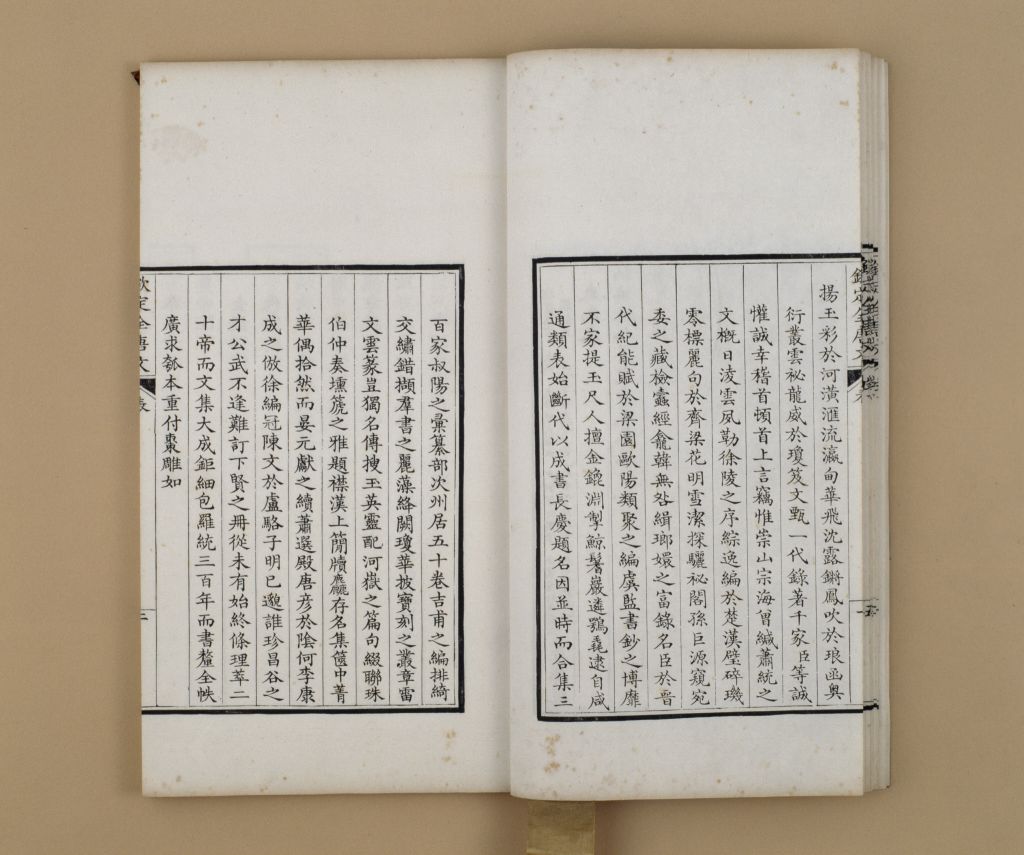 欽定全唐文
表
揚玉彩於河潢滙流瀛甸華飛沈露鏘鳳吹於琅函奥
衍叢雲祕龍威於瓊笈文甄一代錄著千家臣等誠
懽誠幸稽首頓首上言竊惟崇山宗海曾緘蕭統之
文概日淩雲夙勒徐陵之序綜逸編於楚漢璧碎璣
零標麗句於齊梁花明雪潔探驪祕閣孫巨源窺宛
委之藏檢蠹經龕韓無咎緝瑯嬛之富錄名臣於晉
代紀能賦於梁園歐陽類聚之編虞監書鈔之博靡
不家提玉尺人擅金鎞淵掣鯨鬐巖遴鶚毳逮自咸
通類表始斷代以成書長慶題名因並時而合集三
百家叔陽之彙纂部次州居五十卷吉甫之編排綺
交繡錯擷羣書之麗藻絳闕瓊華披寶刻之叢章雷
文雲篆豈獨名傳搜玉英靈配河嶽之篇句綴聯珠
伯仲奏壎箎之雅題襟漢上簡牘麤存名集篋中菁
華偶拾然而晏元獻之續蕭選殿唐彦於陰何李康
成之倣徐編冠陳文於盧駱子明已邈誰珍昌谷之
才公武不逢難訂下賢之冊從未有始終條理萃二
十帝而文集大成鉅細包羅統三百年而書釐全帙
廣求瓠本重付棗雕如
欽定全唐文
表
三